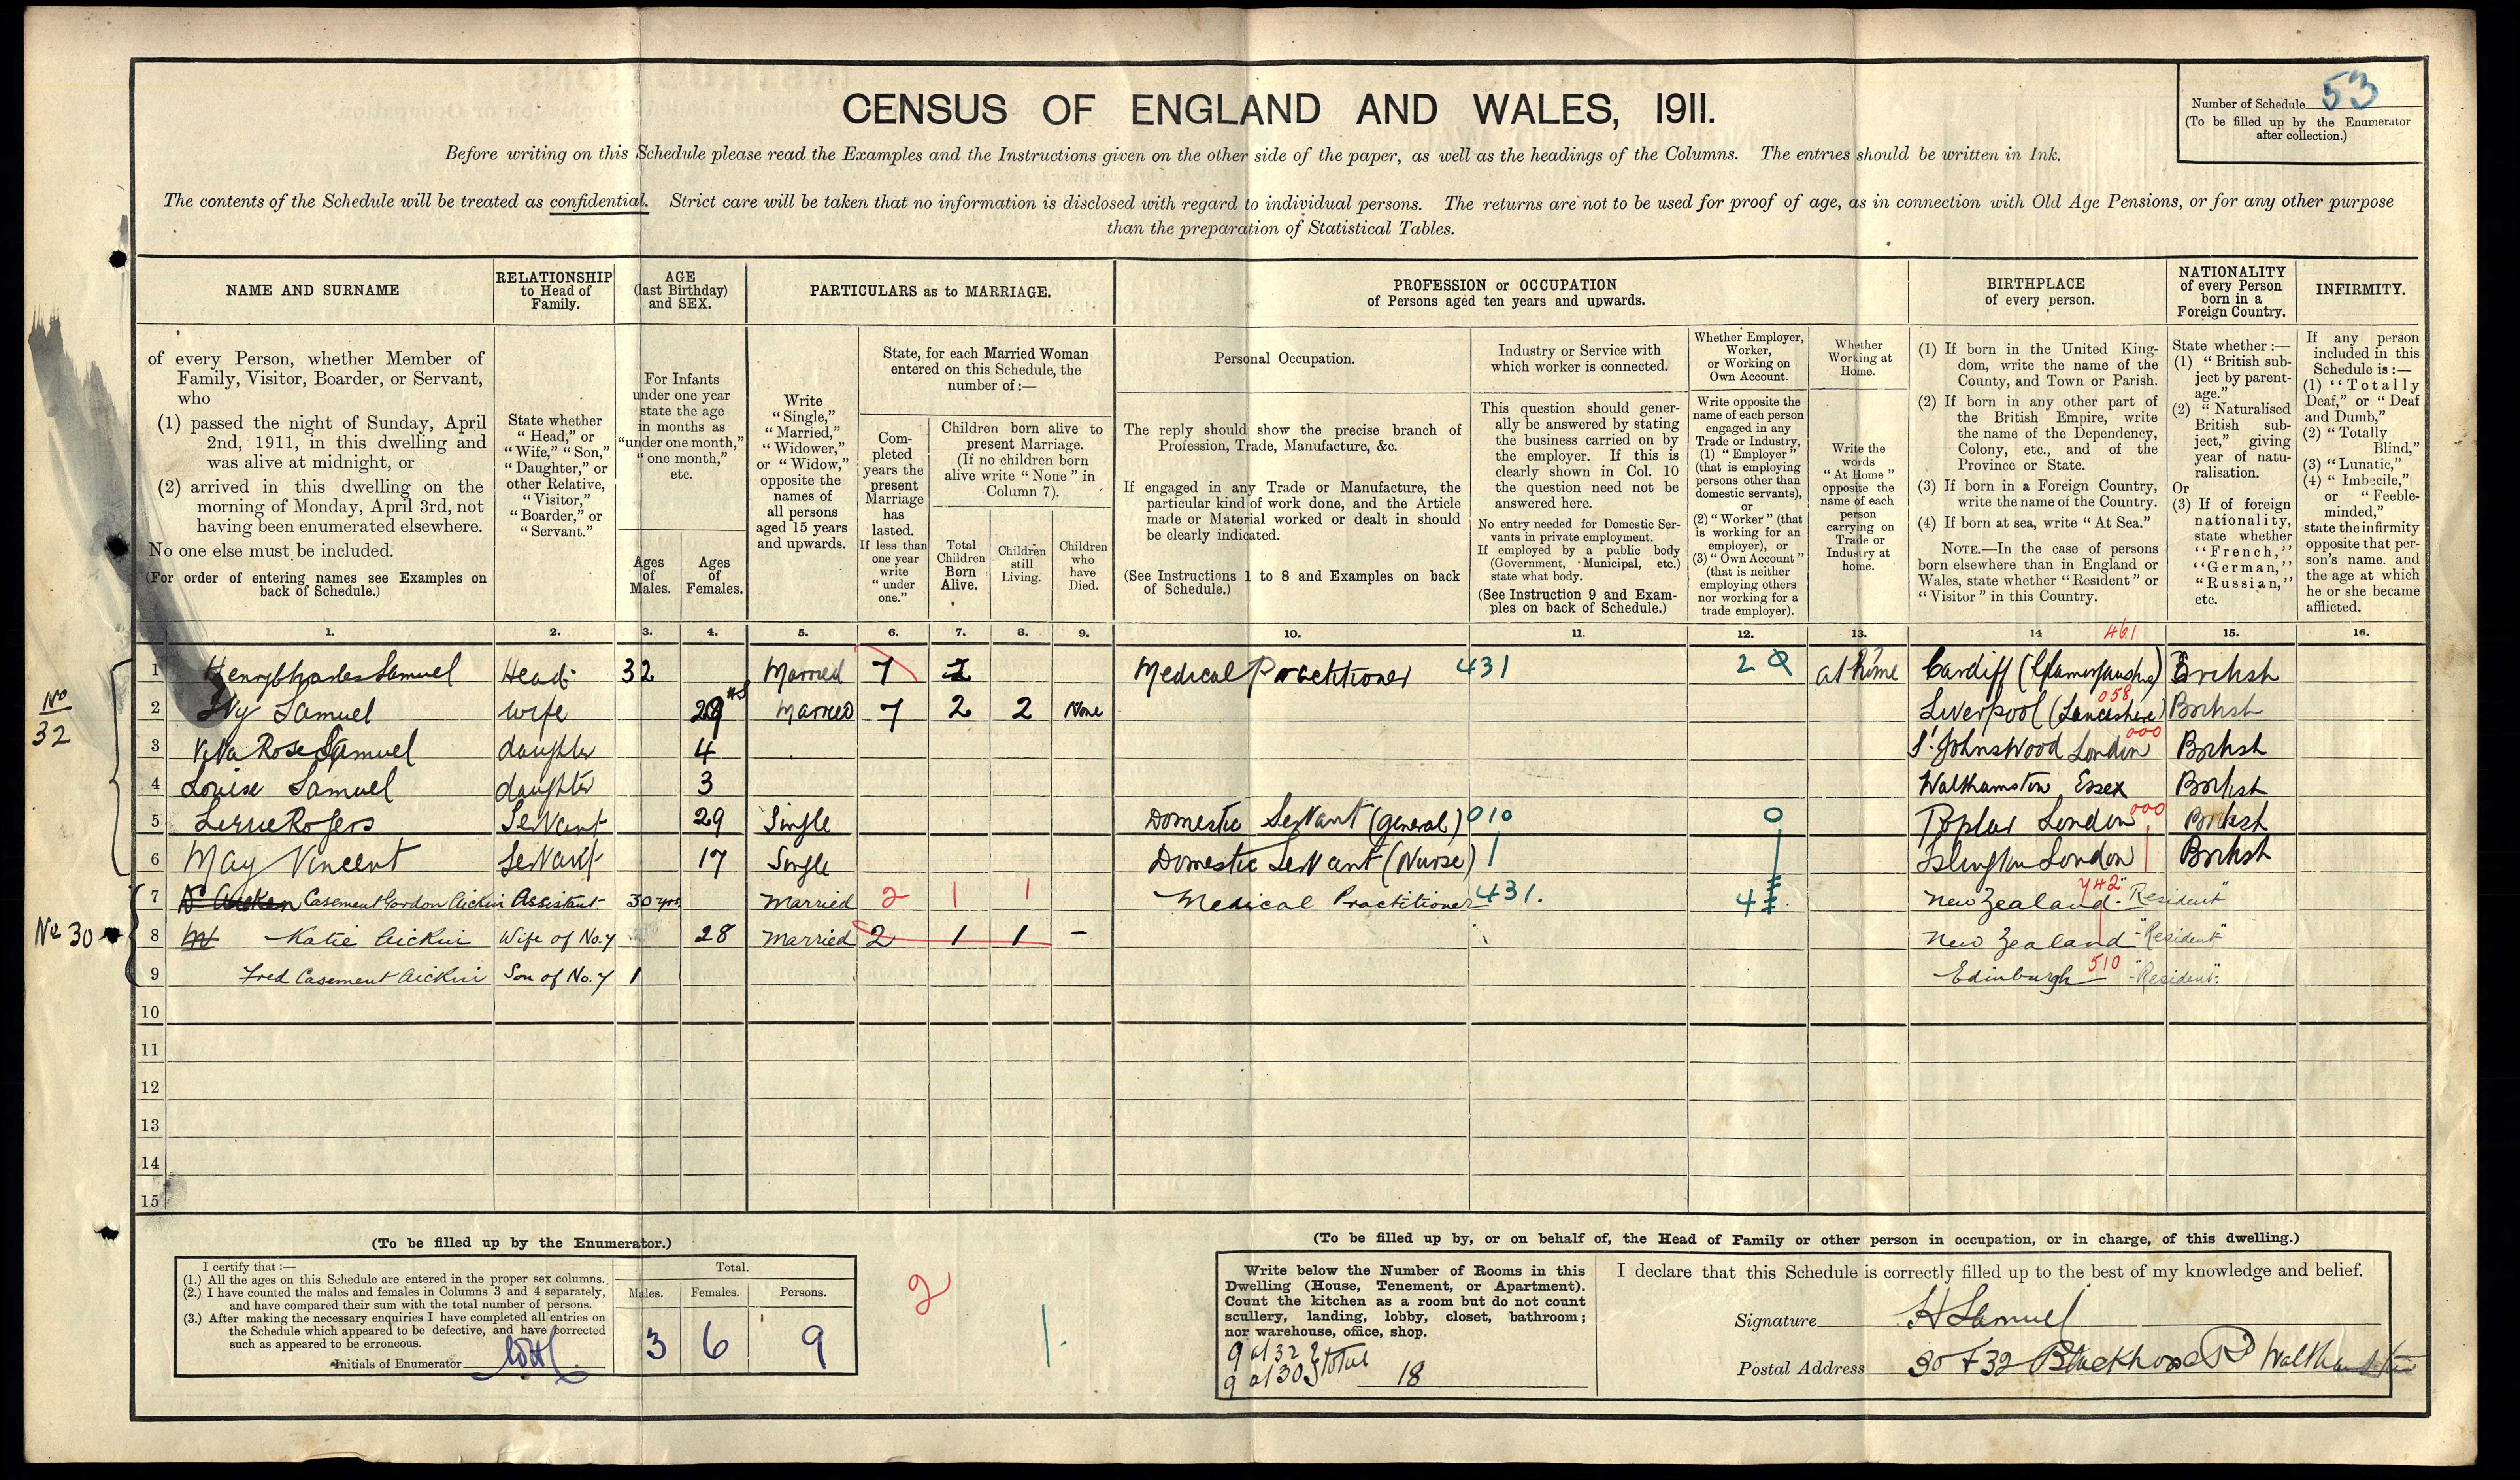 CENSUS OF ENGLAND AND WALES, 1911.
Number of Schedule 53
(To be filled up by the Enumerator
after collection.)
Before writing on this Schedule please read the Examples and the Instructions given on the other side of the paper, as well as the headings of the Columns. The entries should be written in Ink.
The contents of the Schedule will be treated as confidential. Strict care will be taken that no information is disclosed with regard to individual persons. The returns are not to be used for proof of age, as in connection with Old Age Pensions, or for any other purpose
than the preparation of Statistical Tables.
NAME AND SURNAME
of every Person, whether Member of
Family, Visitor, Boarder, or Servant,
who
(1) passed the night of Sunday, April
2nd, 1911, in this dwelling and
was alive at midnight, or
(2) arrived in this dwelling on the
morning of Monday, April 3rd, not
having been enumerated elsewhere.
No one else must be included.
(For order of entering names see Examples on
back of Schedule.)
RELATIONSHIP
to Head of
Family.
State whether
"Head," or
"Wife," "Son,"
"Daughter," or
other Relative,
"Visitor,"
"Boarder," or
"Servant."
AGE
(last Birthday)
and SEX.
For Infants
under one year
state the age
in months as
"under one month,"
"one month,"
etc.
Ages
of
Males.
Ages
of
Females.
PARTICULARS as to MARRIAGE.
Write
"Single,"
"Married,"
"Widower,"
or "Widow,"
opposite the
names of
all persons
aged 15 years
and upwards.
State, for each Married Woman
entered on this Schedule, the
number of:—
Com-
pleted
years the
present
Marriage
has
lasted.
If less than
one year
write
"under
one."
Children born alive to
present Marriage.
(If no children born
alive write "None" in
Column 7).
Total
Children
Born
Alive.
Children
still
Living.
Children
who
have
Died.
PROFESSION or OCCUPATION
of Persons aged ten years and upwards.
Personal Occupation.
The reply should show the precise branch of
Profession, Trade, Manufacture, &c.
If engaged in any Trade or Manufacture, the
particular kind of work done, and the Article
made or Material worked or dealt in should
be clearly indicated.
(See Instructions 1 to 8 and Examples on back
of Schedule.)
Industry or Service with
which worker is connected.
This question should gener-
ally be answered by stating
the business carried on by
the employer. If this is
clearly shown in Col. 10
the question need not be
answered here.
No entry needed for Domestic Ser-
vants in private employment.
If employed by a public body
(Government, Municipal, etc.)
state what body.
(See Instruction 9 and Exam-
ples on back of Schedule.)
Whether Employer,
Worker,
or Working on
Own Account.
Write opposite the
name of each person
engaged in any
Trade or Industry,
(1) "Employer"
(that is employing
persons other than
domestic servants),
or
(2) "Worker" (that
is working for an
employer), or
(3) "Own Account"
(that is neither
employing others
nor working for a
trade employer).
Whether
Working at
Home.
Write the
words
"At Home"
opposite the
name of each
person
carrying on
Trade or
Industry at
home.
BIRTHPLACE
of every person.
(1) If born in the United King-
dom, write the name of the
County, and Town or Parish.
(2) If born in any other part of
the British Empire, write
the name of the Dependency,
Colony, etc., and of the
Province or State.
(3) If born in a Foreign Country,
write the name of the Country.
(4) If born at sea, write "At Sea."
NOTE.—In the case of persons
born elsewhere than in England or
Wales, state whether "Resident" or
"Visitor" in this Country.
NATIONALITY
of every Person
born in a
Foreign Country.
State whether:—
(1) "British sub-
ject by parent-
age."
(2) "Naturalised
British sub-
ject," giving
year of natu-
ralisation.
Or
(3) If of foreign
nationality,
state whether
"French,"
"German,"
"Russian,"
etc.
INFIRMITY.
If any person
included in this
Schedule is:—
(1) "Totally
Deaf," or "Deaf
and Dumb,"
(2) "Totally
Blind,"
(3) "Lunatic,"
(4) "Imbecile,"
or "Feeble-
minded,"
state the infirmity
opposite that per-
son's name, and
the age at which
he or she became
afflicted.
1. 2. 3. 4. 5. 6. 7. 8. 9. 10. 11. 12. 13. 14 15. 16.
461
No 32
1 Henry Charles Samuel Head 32 Married 7 2 Medical Practitioner 431 2 at home Cardiff (Glamorganshire) British
2 Ivy Samuel wife 29 Married 7 2 2 None Liverpool (Lancashire) 058 British
3 Rose Samuel daughter 4 St Johns Wood London 000 British
4 Louise Samuel daughter 3 Walthamstow Essex British
5 Rogers Servant 29 Single Domestic Servant (General) 010 0 Poplar London 000 British
6 May Vincent Servant 17 Single Domestic Servant (Nurse) Islington London British
No 30
7 Dr Aicken Casement Gordon Aickin Assistant 30 yrs. Married 2 1 1 Medical Practitioner 431. 4 New Zealand - 742 "Resident"
8 Katie Aickin Wife of No. 7 28 Married 2 1 1 - New Zealand "Resident"
9 Fred Casement Aickin Son of No. 7 1 Edinburgh 510 "Resident".
10
11
12
13
14
15
(To be filled up by the Enumerator.)
I certify that:—
(1.) All the ages on this Schedule are entered in the proper sex columns.
(2.) I have counted the males and females in Columns 3 and 4 separately,
and have compared their sum with the total number of persons.
(3.) After making the necessary enquiries I have completed all entries on
the Schedule which appeared to be defective, and have corrected
such as appeared to be erroneous.
Initials of Enumerator
Total.
Males. Females. Persons.
3 6 9
2
1.
(To be filled up by, or on behalf of, the Head of Family or other person in occupation, or in charge, of this dwelling.)
Write below the Number of Rooms in this
Dwelling (House, Tenement, or Apartment).
Count the kitchen as a room but do not count
scullery, landing, lobby, closet, bathroom;
nor warehouse, office, shop.
9 at 32
9 at 30 } total 18
I declare that this Schedule is correctly filled up to the best of my knowledge and belief.
Signature H Samuel
Postal Address 30 & 32 Blackhorse Rd Walthamstow